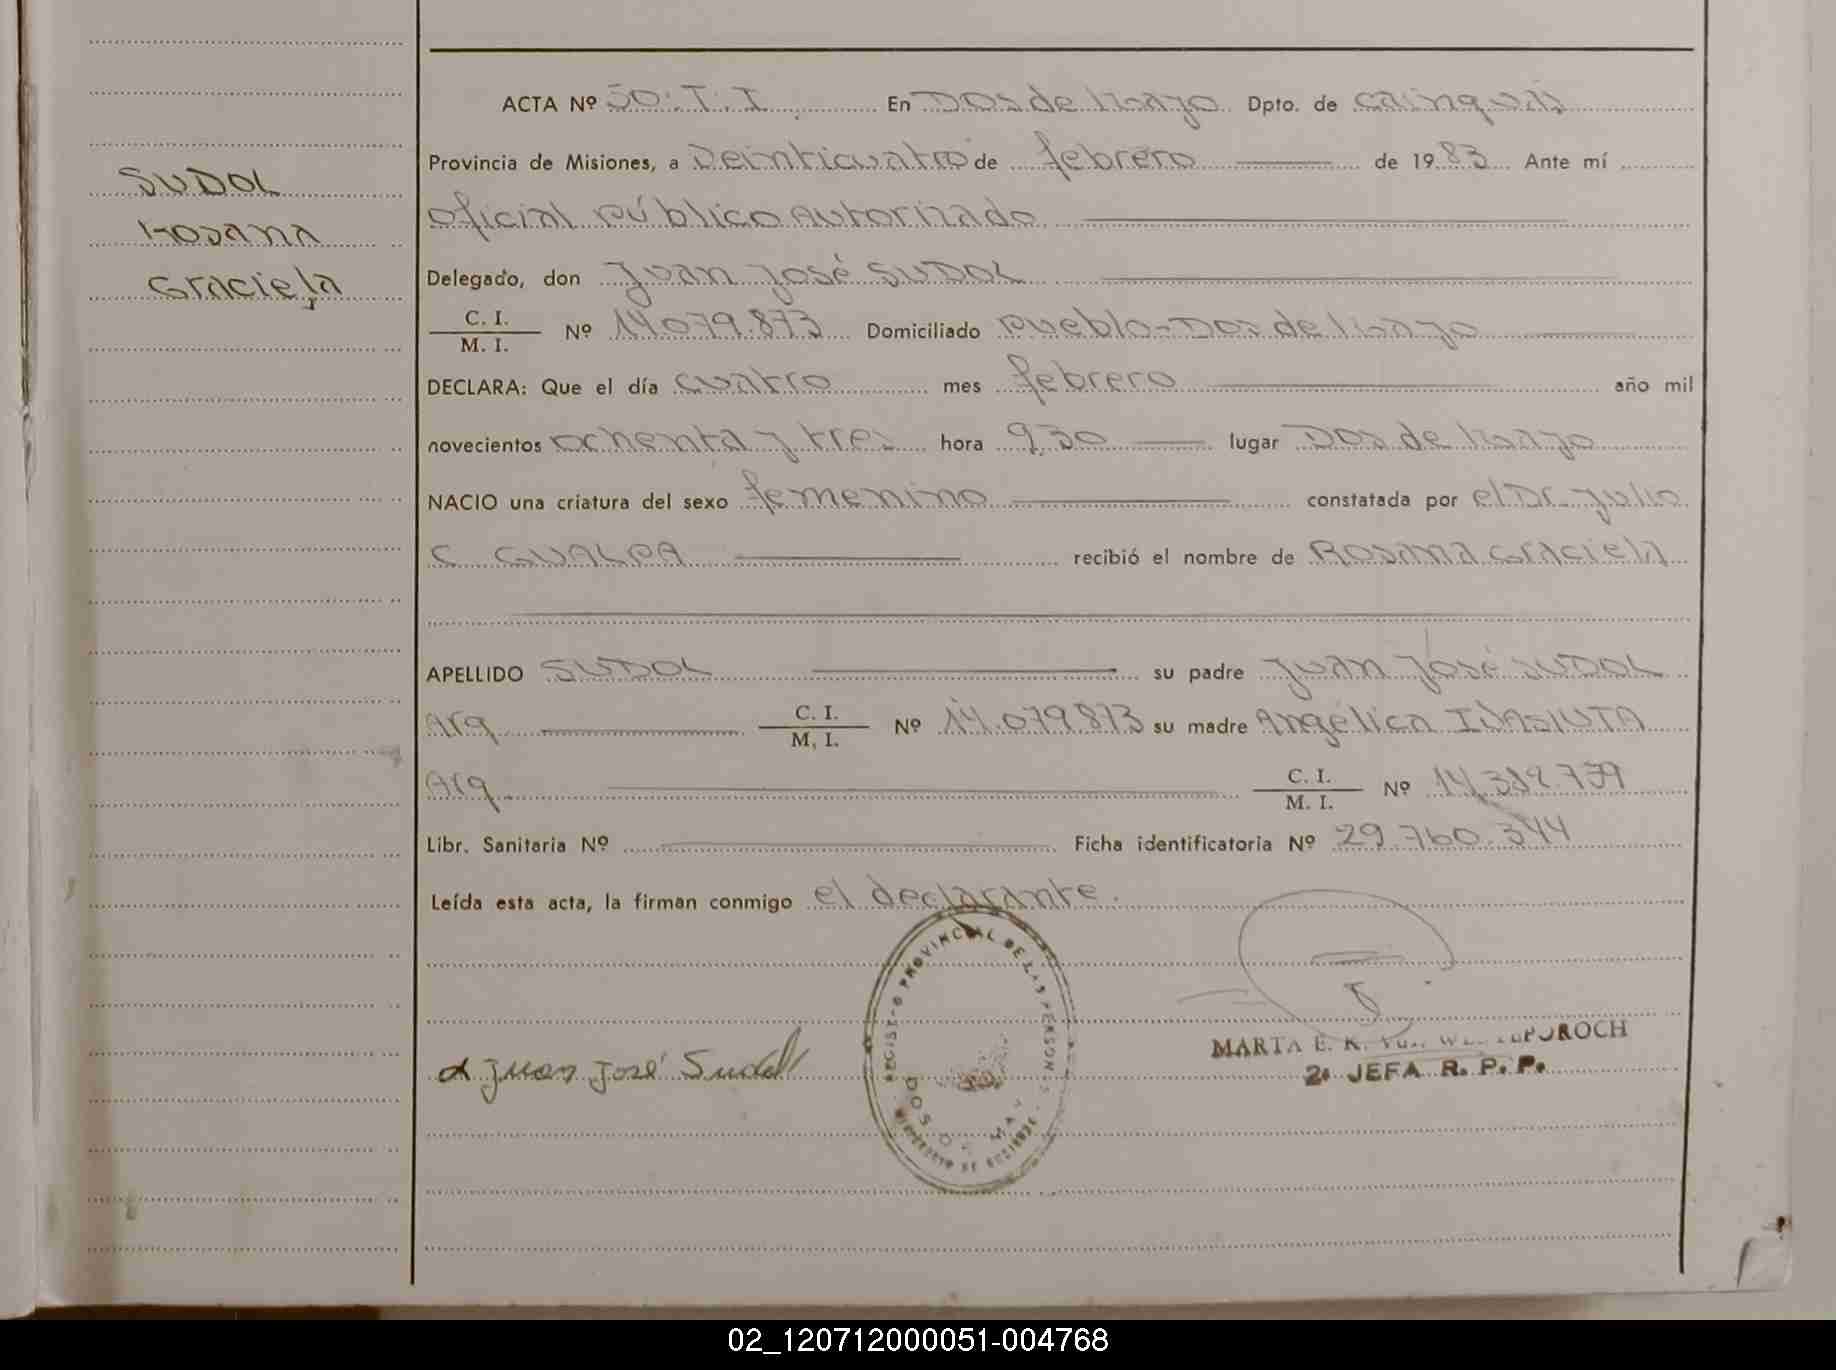 SUDOL
Rosana
Graciela
ACTA Nº 50: T. I. En Dos de Mayo Dpto. de Cainguás
Provincia de Misiones, a Veinticuatro de febrero de 1983 Ante mí
Oficial Público Autorizado
Delegado, don Juan José SUDOL
C. I.
M. I. Nº 14.079.873 Domiciliado Pueblo-Dos de Mayo
DECLARA: Que el día cuatro mes febrero año mil
novecientos ochenta y tres hora 9,30 lugar Dos de Mayo
NACIO una criatura del sexo femenino constatada por el Dr. Julio
C. GUALPA recibió el nombre de Rosana Graciela
APELLIDO SUDOL su padre Juan José SUDOL
Arg C. I.
M. I. Nº 14.079.873 su madre Angélica
Arg C. I.
M. I. Nº
Libr. Sanitaria Nº Ficha identificatoria Nº 29.760.344
Leída esta acta, la firman conmigo el declarante.
REGISTRO PROVINCIAL DE LAS PERSONAS
DOS DE MAYO
Juan José Sudol
MARTA E. K.
2º JEFA R. P. P.
02_120712000051-004768